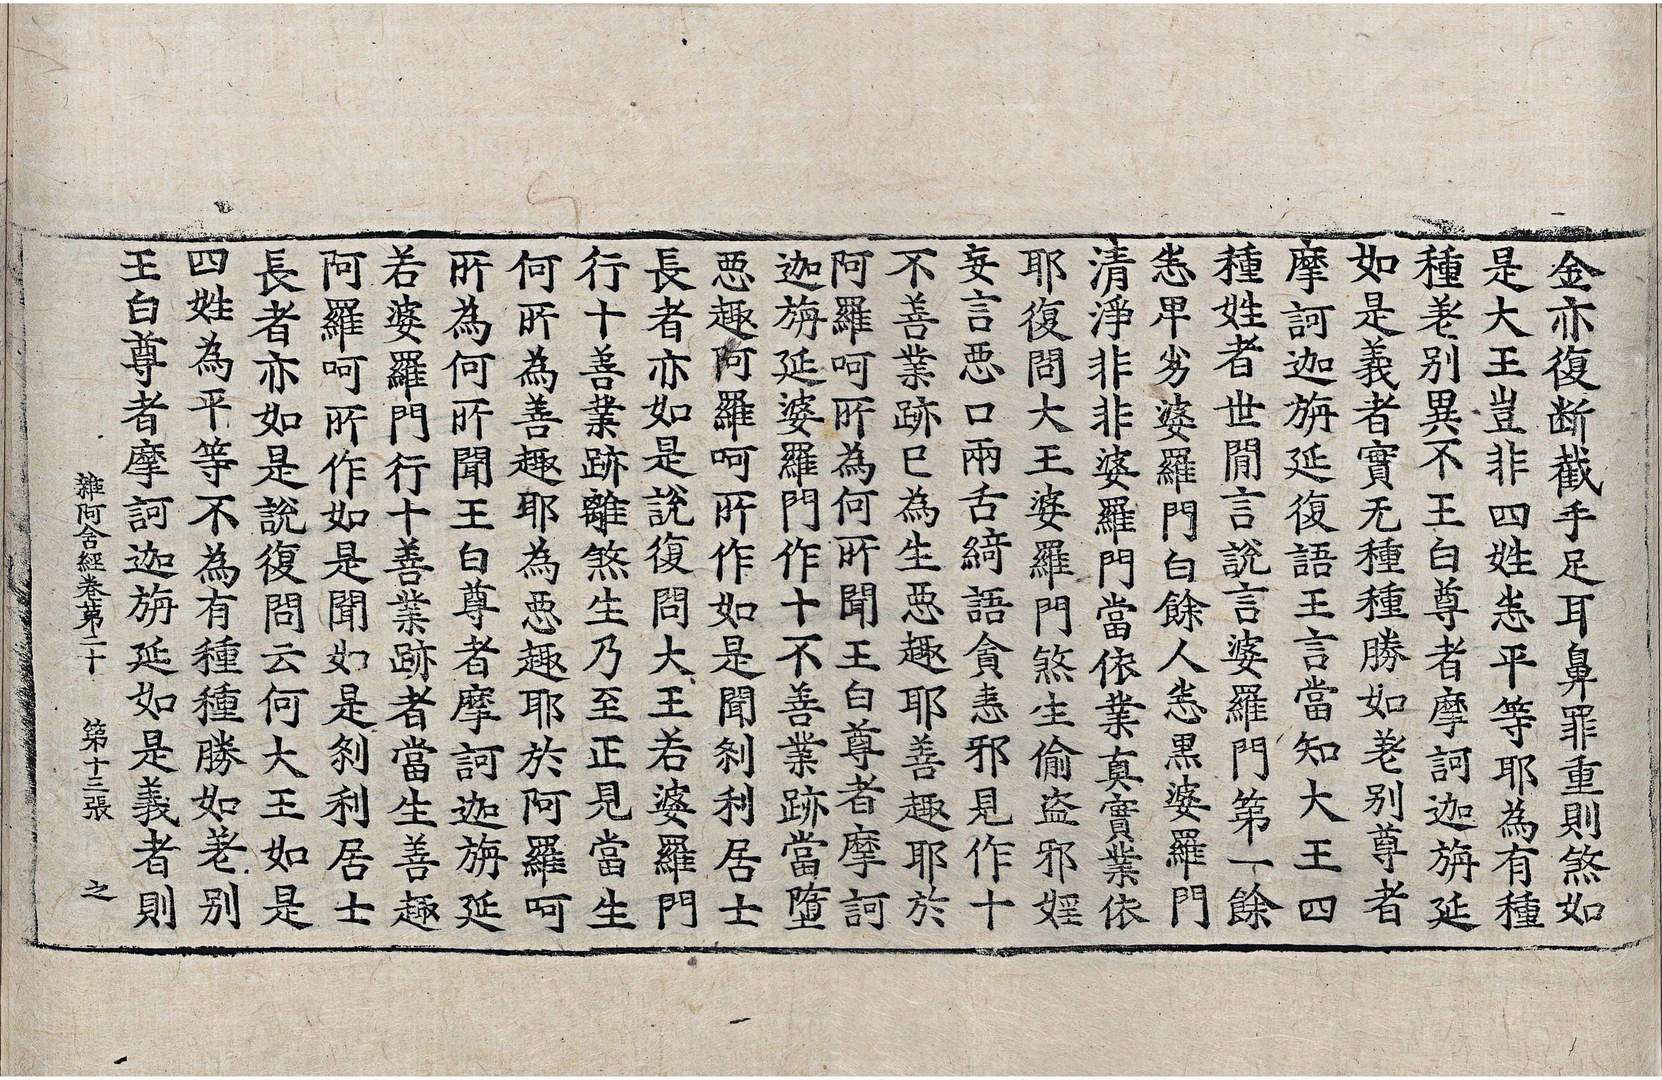 金亦復断截手足耳鼻罪重則煞如
是大王豈非四姓悉平等耶為有種
種差别異不王白尊者摩訶迦旃延
如是義者實无種種勝如差别尊者
摩訶迦旃延復語王言當知大王四
種姓者世閒言說言婆羅門第一餘
悉卑劣婆羅門白餘人悉黒婆羅門
清淨非非婆羅門當依業真實業依
耶復問大王婆羅門煞生偷盗邪婬
妄言惡口兩舌綺語貪恚邪見作十
不善業跡已為生惡趣耶善趣耶於
阿羅呵所為何所聞王白尊者摩訶
迦旃延婆羅門作十不善業跡當墮
惡趣阿羅呵所作如是聞刹利居士
長者亦如是說復問大王若婆羅門
行十善業跡離煞生乃至正見當生
何所為善趣耶為惡趣耶於阿羅呵
所為何所聞王白尊者摩訶迦旃延
若婆羅門行十善業跡者當生善趣
阿羅呵所作如是聞如是刹利居士
長者亦如是說復問云何大王如是
四姓為平等不為有種種勝如差别
王白尊者摩訶迦旃延如是義者則
雜阿含經卷第二十 第十三張 之